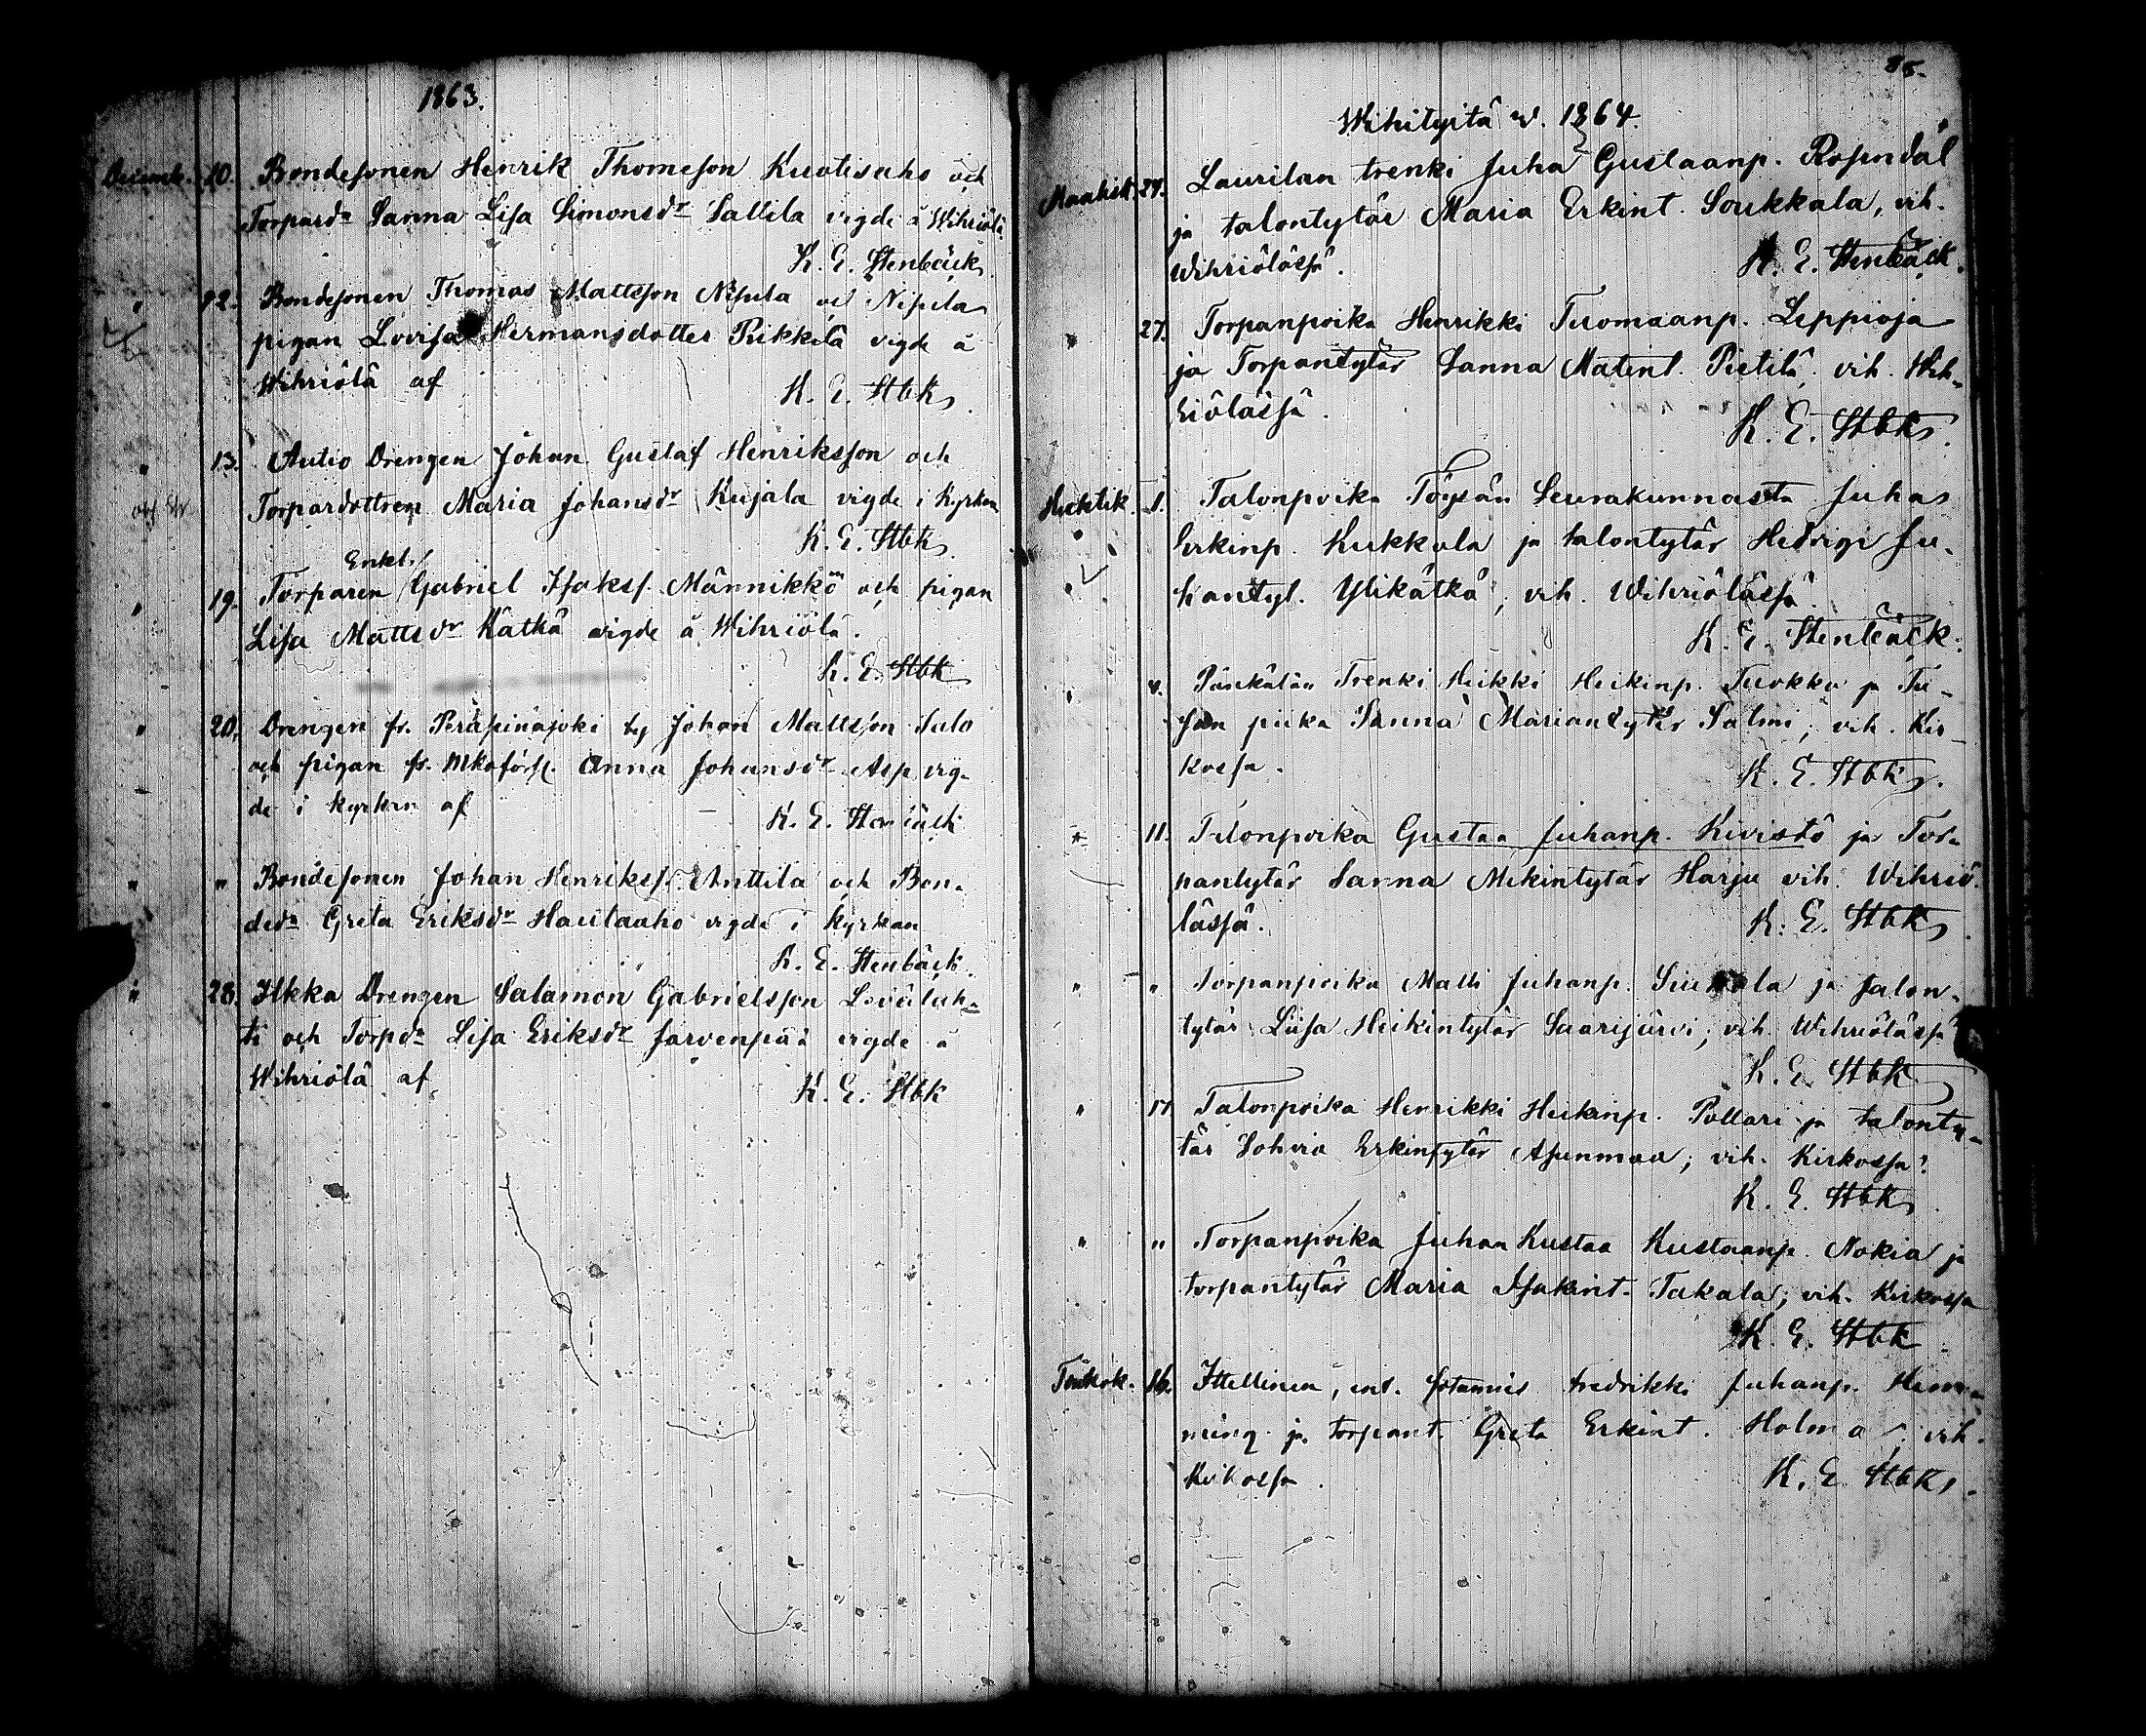 1863.
Decemb. 10. Bondesonen Henrik Thomeson Kuotisaho och
Torpardr Sanna Lisa Simonsdr Sallila vigde å Wihriölä
K. E. Stenbäck
" 12. Bondesonen Thomas Mattsson Nisula och Nisula
pigan Lovisa Hermansdotter Rikkilä vigde å
Wihriölä af
K. E. Stbk
" 13. Autio Drengen Johan Gustaf Henriksson och
Torpardottren Maria Johansdr Kujala vigde i Kyrkan
K. E. Stbk
Enkl.
" 19. Torparen Gabriel Isaksf. Männikkö och pigan
Lisa Mattsdr Kätkä vigde å Wihriölä.
K. E. Stbk
" 20. Drengen fr. Peräpinajoki by Johan Mattsson Salo
och pigan fr. Anna Johansdr Asp vig-
de i kyrkan af
K. E. Stenbäck
" " Bondesonen Johan Henrikss. Anttila och Bon-
dedr Greta Eriksdr Hautaaho vigde i kyrkan
K. E. Stenbäck.
" 28. Ilkka Drengen Salamon Gabrielsson Levälah-
ti och Torpdr Lisa Eriksdr Jarvenpää vigde å
Wihriölä af
K. E. Stbk
85.
Wihityitä v. 1864.
Maalisk. 27. Laurilan trenki Juha Gustaanp. Rosendal
ja talontytär Maria Erkint. Soukkala, vih.
Wihriölässä.
K. E. Stenbäck.
" 27. Torpanpoika Henrikki Tuomaanp. Leppioja
ja Torpantytär Sanna Matint. Pietilä, vih. Wih-
riölässä.
K. E. Stbk.
Huhtik. 1. Talonpoika Töysän Seurakunnasta Juha
Erkinp. Kukkola ja talontytär Hedvigi Ju-
hantyt. Ylikätkä, vih. Wihriölässä.
K. E. Stenbäck.
" Trenki Heikki Heikinp. Tuokko ja Tu-
san piika Sanna Mariantytär Salmi, vih. Kir-
kossa.
K. E. Stbk.
" 11. Talonpoika Gustaa Juhanp. Kivistö ja Tor-
pantytär Sanna Mikintytär Harju vih. Wihriö-
lässä.
K. E. Stbk
" " Torpanpoika Matti Juhanp. ja talon-
tytär Liisa Heikintytär Saarijärvi, vih. Wihriölässä
K. E. Stbk
" 17. Talonpoika Henrikki Heikinp. Pollari ja talonty-
tär Sohvia Erkintytär Asunmaa; vih. Kirkossa.
K. E. Stbk
" " Torpanpoika Juhan Kustaa Kustaanp. Nokia ja
torpantytär Maria Isakint. Takala, vih. Kirkossa
K. E. Stbk
Toukok. 16. Itsellinen, ent. sotamies Fredrikki Juhanp. Hem-
ming ja torpant. Greta Erkint. Holma, vih.
Kirkossa.
K. E. Stbk.